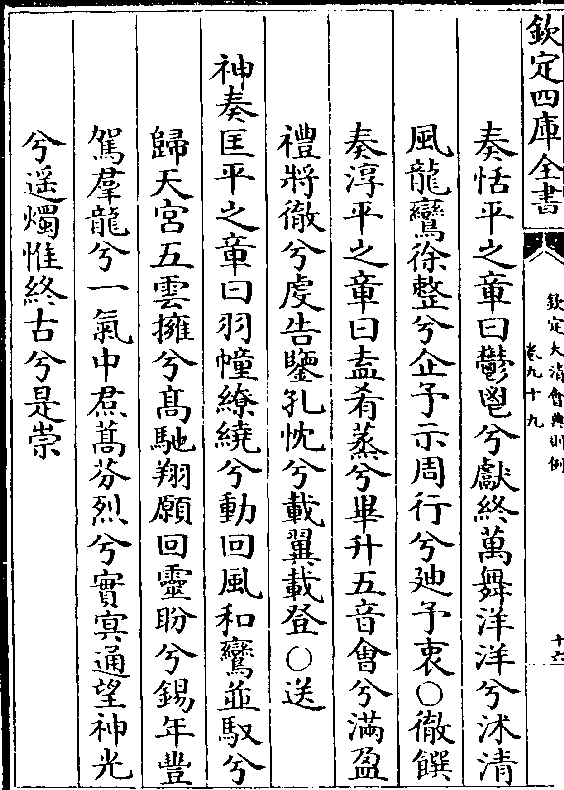 欽定四庫全書
欽定大清會典則例
卷九十九
十六
奏恬平之章曰鬱鬯兮獻終萬舞洋洋兮沐清
風龍鸞徐整兮企予示周行兮廸予衷○徹饌
奏淳平之章曰盍肴蒸兮畢升五音會兮滿盈
禮將徹兮虔告鑒孔忱兮載翼載登○送
神奏匡平之章曰羽幢繚繞兮動回風和鸞並馭兮
歸天宮五雲擁兮髙馳翔願回靈盼兮錫年豐
駕羣龍兮一氣中焄蒿芬烈兮實㝠通望神光
兮遥燭惟終古兮是崇